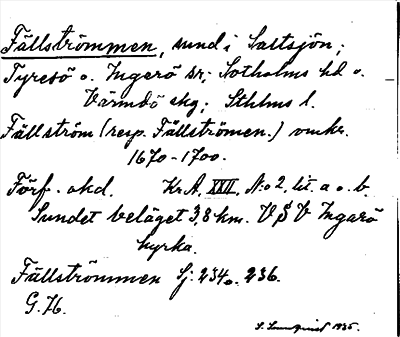 Fällströmmen, sund i Saltsjön;
Tyresö o. Ingarö sr; Sotholms hd o.
Värmdö skg; Sthlms l.
Fällström (resp. Fällströmen.) omkr.
1670-1700.
Förf. okd. Kr.A, XXII, N:o 2, lit. a o. b.
Sundet beläget 3,8 km. V S V Ingarö
kyrka.
Fällströmmen Sj: 234 o. 236.
G. H.
1935.